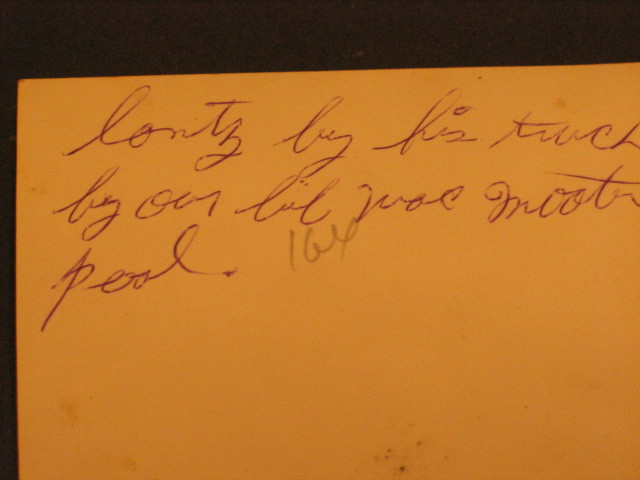 lontz by his truck
by our lil
pool.
164